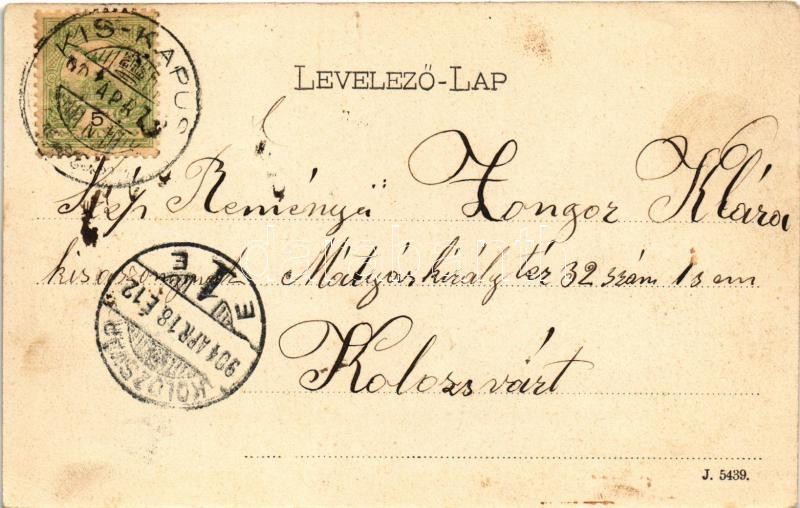 KIS-KAPUS
LEVELEZŐ-LAP
Szép Reményű Zongor Klára
kisasszonynak Mátyás király tér 32 szám I s em
Kolozsvárt
KOLOZSVÁR
904 APR 18 É.12
E 1 E
J. 5439.